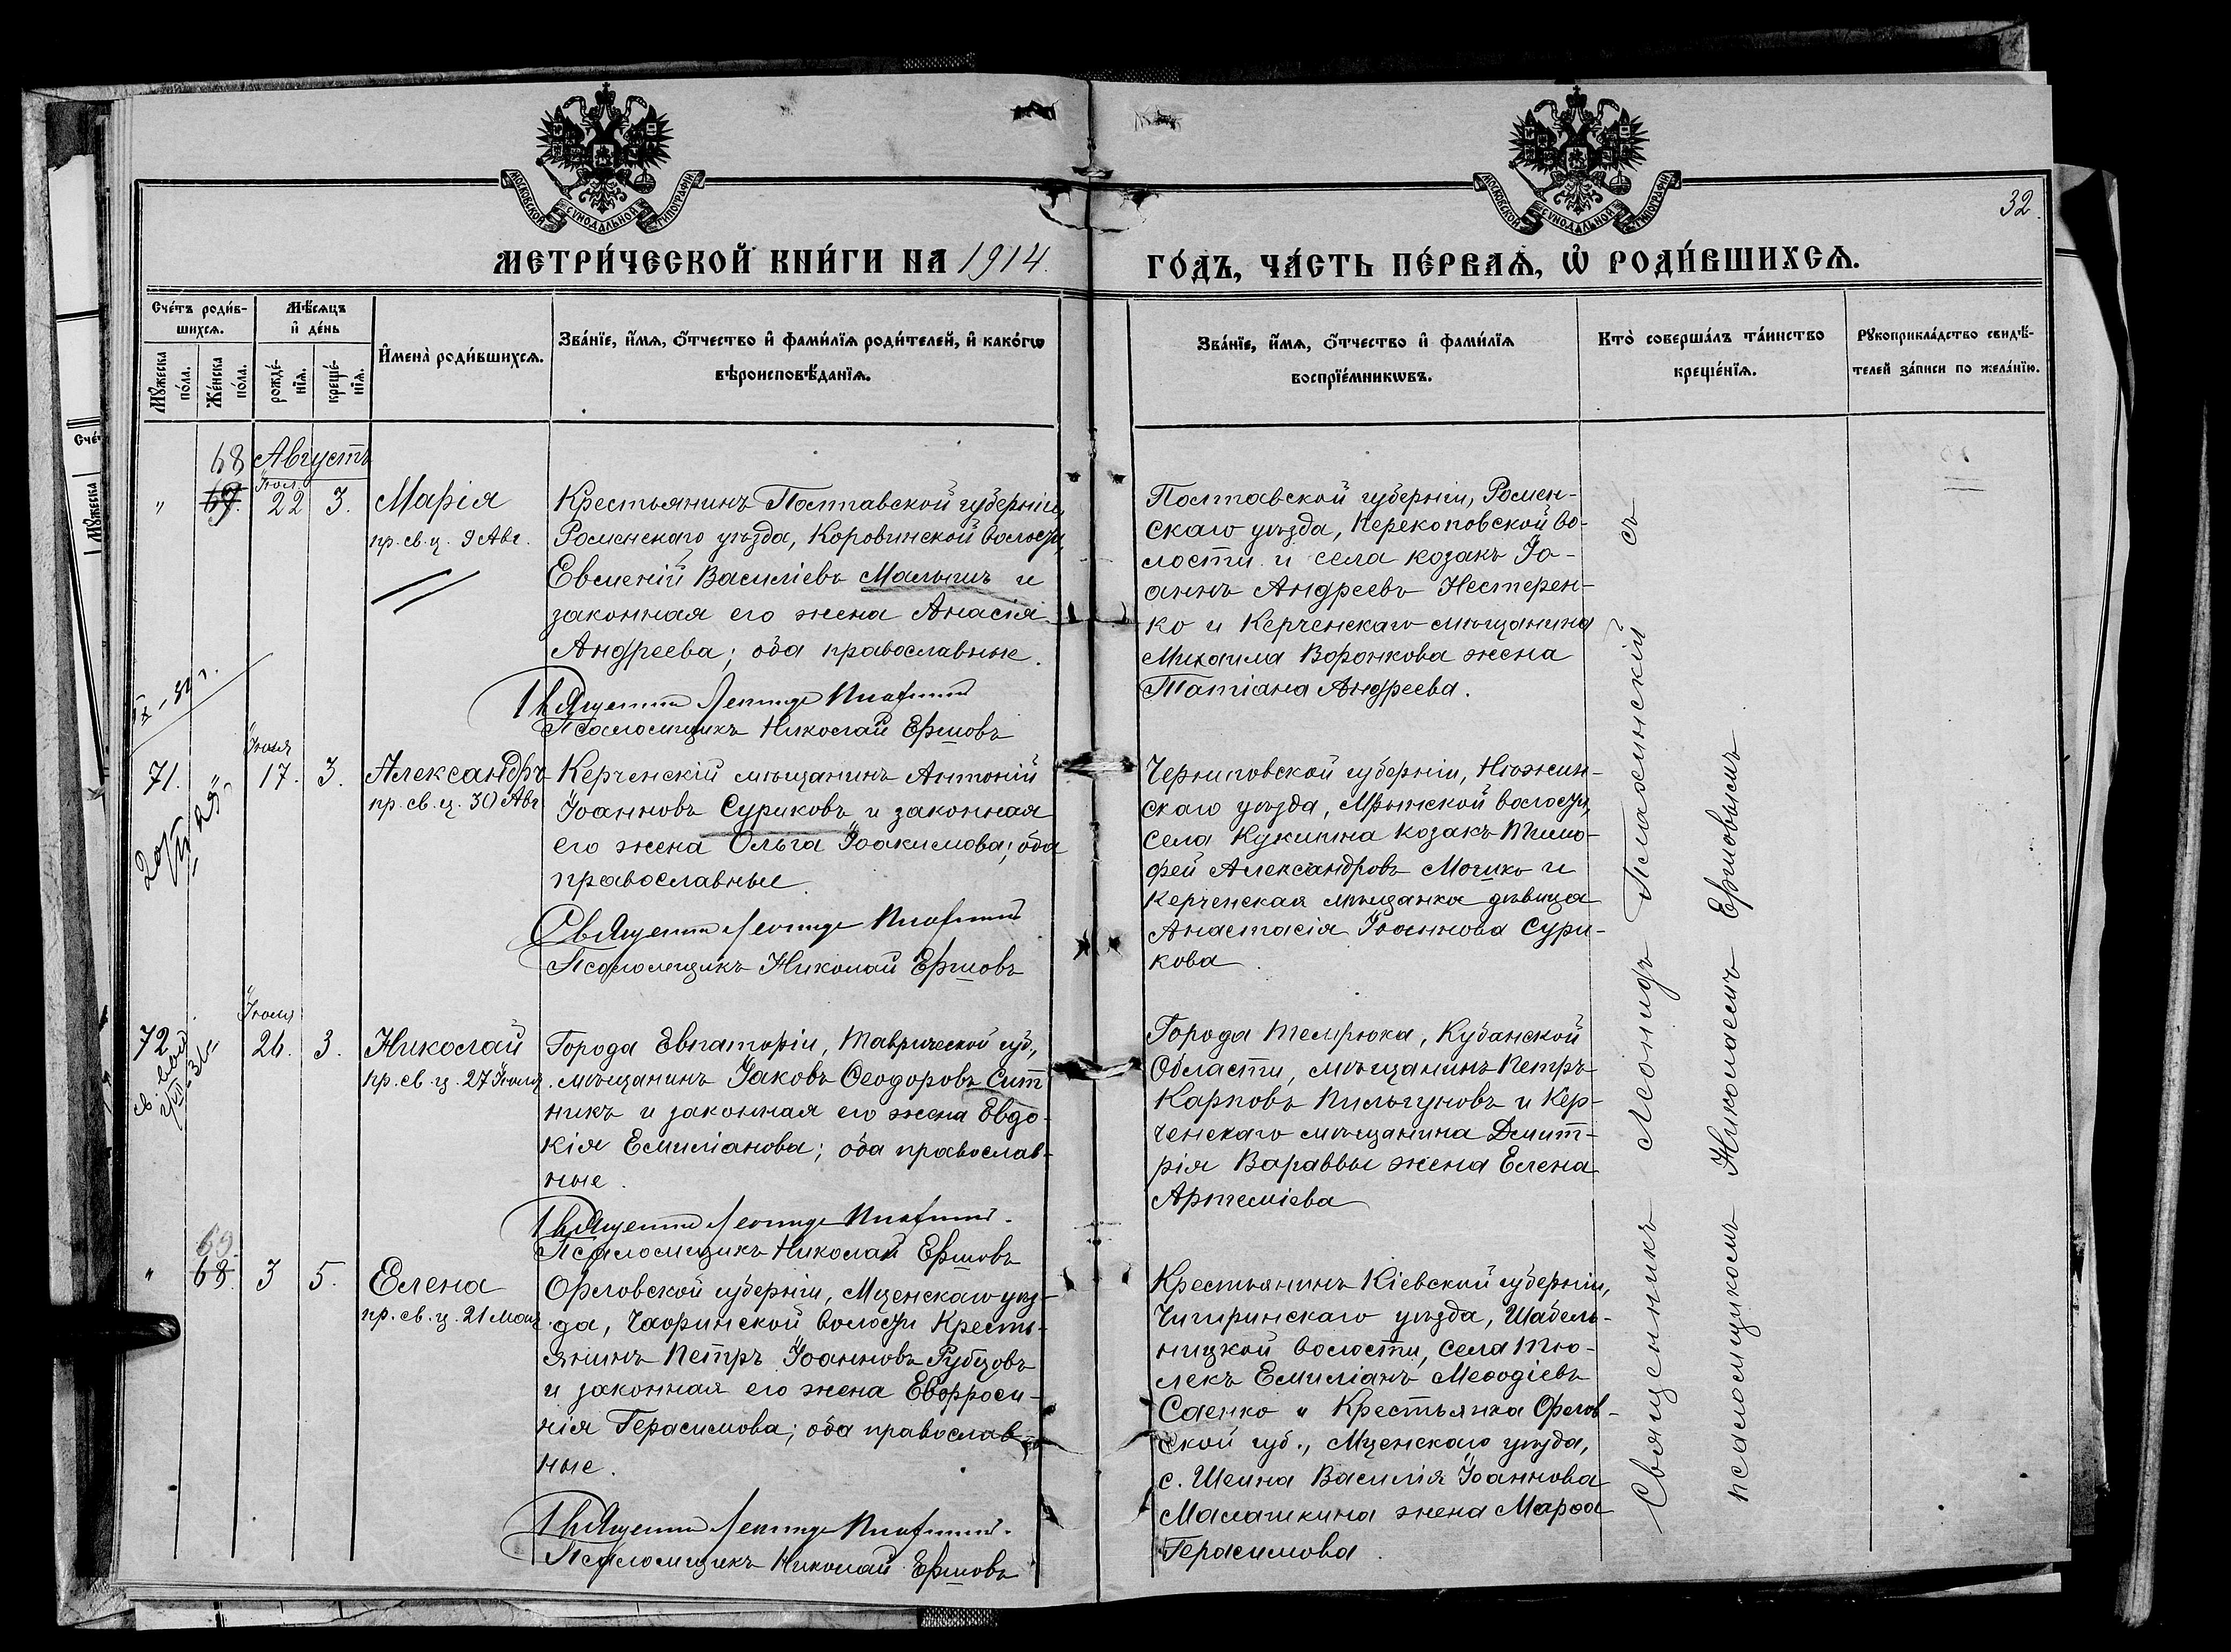 МОСКОВСКОЙ СѴНОДАЛЬНОЙ ТИПОГРАФІИ
МОСКОВСКОЙ СѴНОДАЛЬНОЙ ТИПОГРАФІИ
32.
МЕТРИ́ЧЕСКОЙ КНИ́ГИ НА 1914.
ГО́ДЪ, ЧА́СТЬ ПЕ́РВАѦ, Ѡ҆ РОДИ́ВШИХСѦ.
Сче́тъ роди́в-
шихсѧ.
Мꙋ́жеска
по́ла.
Же́нска
по́ла.
Мѣ́сѧцъ
и҆ де́нь
рожде́-
нїѧ.
креще́-
нїѧ.
И҆мена̀ роди́вшихсѧ.
Зва́нїе, и҆́мѧ, ѻ҆́тчество и҆ фами́лїѧ роди́телей, и҆ како́гѡ
вѣроисповѣ́данїѧ.
Зва́нїе, и҆́мѧ, ѻ҆́тчество и҆ фами́лїѧ
воспрїе́мникѡвъ.
Кто̀ соверша́лъ та́инство
креще́нїѧ.
Рꙋкоприкла́дство свидѣ́-
телей за́писи по жела́нїю.
Августъ
68
" 67. Іюл. 22 3. Марія
пр. св. ц. 9 Авг.
Крестьянинъ Полтавской губерніи,
Роменскаго уѣзда, Коровинской волости,
Евменій Василіевъ Малышъ и
законная его жена Анасія
Андреева; оба православные.
Священникъ Леонидъ Плаксинскій
Псаломщикъ Николай Ершовъ
Полтавской губерніи, Ромен-
скаго уѣзда, Перекоповской во-
лости и села козакъ Іо-
аннъ Андреевъ Нестерен-
ко и Керченскаго мѣщанина
Михаила Воронкова жена
Татіана Андреева.
71. Іюля 17. 3. Александръ
пр. св. ц. 30 Авг.
Керченскій мѣщанинъ Антоній
Іоанновъ Суриковъ и законная
его жена Ольга Іоакимова; оба
православные.
Священникъ Леонидъ Плаксинскій
Псаломщикъ Николай Ершовъ
Черниговской губерніи, Нѣжин-
скаго уѣзда, Мрынской волости,
села Кукшина козакъ Тимо-
фей Александровъ Мошко и
Керченская мѣщанка дѣвица
Анастасія Іоаннова Сури-
кова.
72 Іюля 26. 3. Николай
пр. св. ц. 27 Іюля.
Города Евпаторіи, Таврической губ.,
мѣщанинъ Іаковъ Ѳеодоровъ Сит
никъ и законная его жена Евдо-
кія Емиліанова; оба православ-
ные.
Священникъ Леонидъ Плаксинскій.
Псаломщикъ Николай Ершовъ
Города Темрюка, Кубанской
Области, мѣщанинъ Петръ
Карповъ Пильгуновъ и Кер-
ченскаго мѣщанина Димит-
рія Вараввы жена Елена
Артеміева
69.
" 68. 3 5. Елена
пр. св. ц. 21 Мая.
Орловской губерніи, Мценскаго уѣз-
да, волости Кресть-
янинъ Петръ Іоанновъ Рубцовъ
и законная его жена Евфроси-
нія Герасимова; оба православ-
ные.
Священникъ Леонидъ Плаксинскій.
Псаломщикъ Николай Ершовъ
Крестьянинъ Кіевской губерніи,
Чигиринскаго уѣзда, Шабель-
ницкой волости, села Тю-
лекъ Емиліанъ Меѳодіевъ
Саенко и Крестьянка Орлов-
ской губ., Мценскаго уѣзда,
с. Шеина Василія Іоаннова
Малашкина жена Марѳа
Герасимова.
Священникъ Леонидъ Плаксинскій съ
псаломщикомъ Николаемъ Ершовымъ